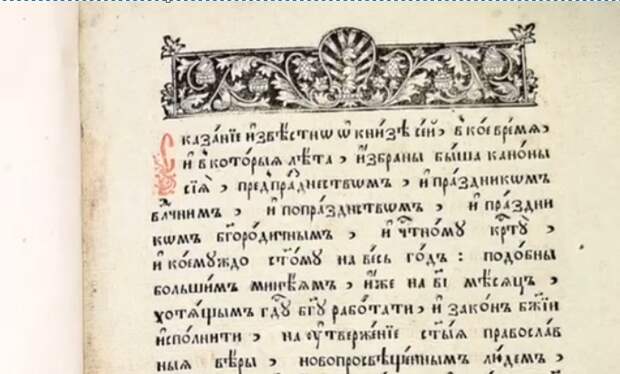 Сказа́нїе и҆звѣ́стнѡ ѡ҆ кни́зѣ се́й, в̾ ко́е вре́мѧ,
и҆ в̾ кото́рыѧ лѣ́та, и҆збраны бы́ша кано́ны
сїѧ̀, пред̾пра́зднествѡмъ, и҆ пра́здникѡмъ
влⷣчнимъ, и҆ попра́зднствѡмъ, и҆ пра́здни
кѡмъ бг҃оро́дичнымъ, и҆ чⷭ҇тно́му крⷭ҇тꙋ̀,
и҆ коемꙋ́ждо ст҃о́мꙋ на ве́сь го́дъ : подо́бны
больши́мъ мине́ѧмъ, и҆́же на в҃і мⷭ҇цъ,
хотѧ́щымъ гдⷭ҇ꙋ бг҃ꙋ рабо́тати, и҆ зако́нъ бж҃їй
и҆спо́лнити, на ᲂу҆твержє́нїе ст҃ы́ѧ правосла́в
ныѧ вѣ́ры, новопросвѣще́ннымъ лю́демъ,